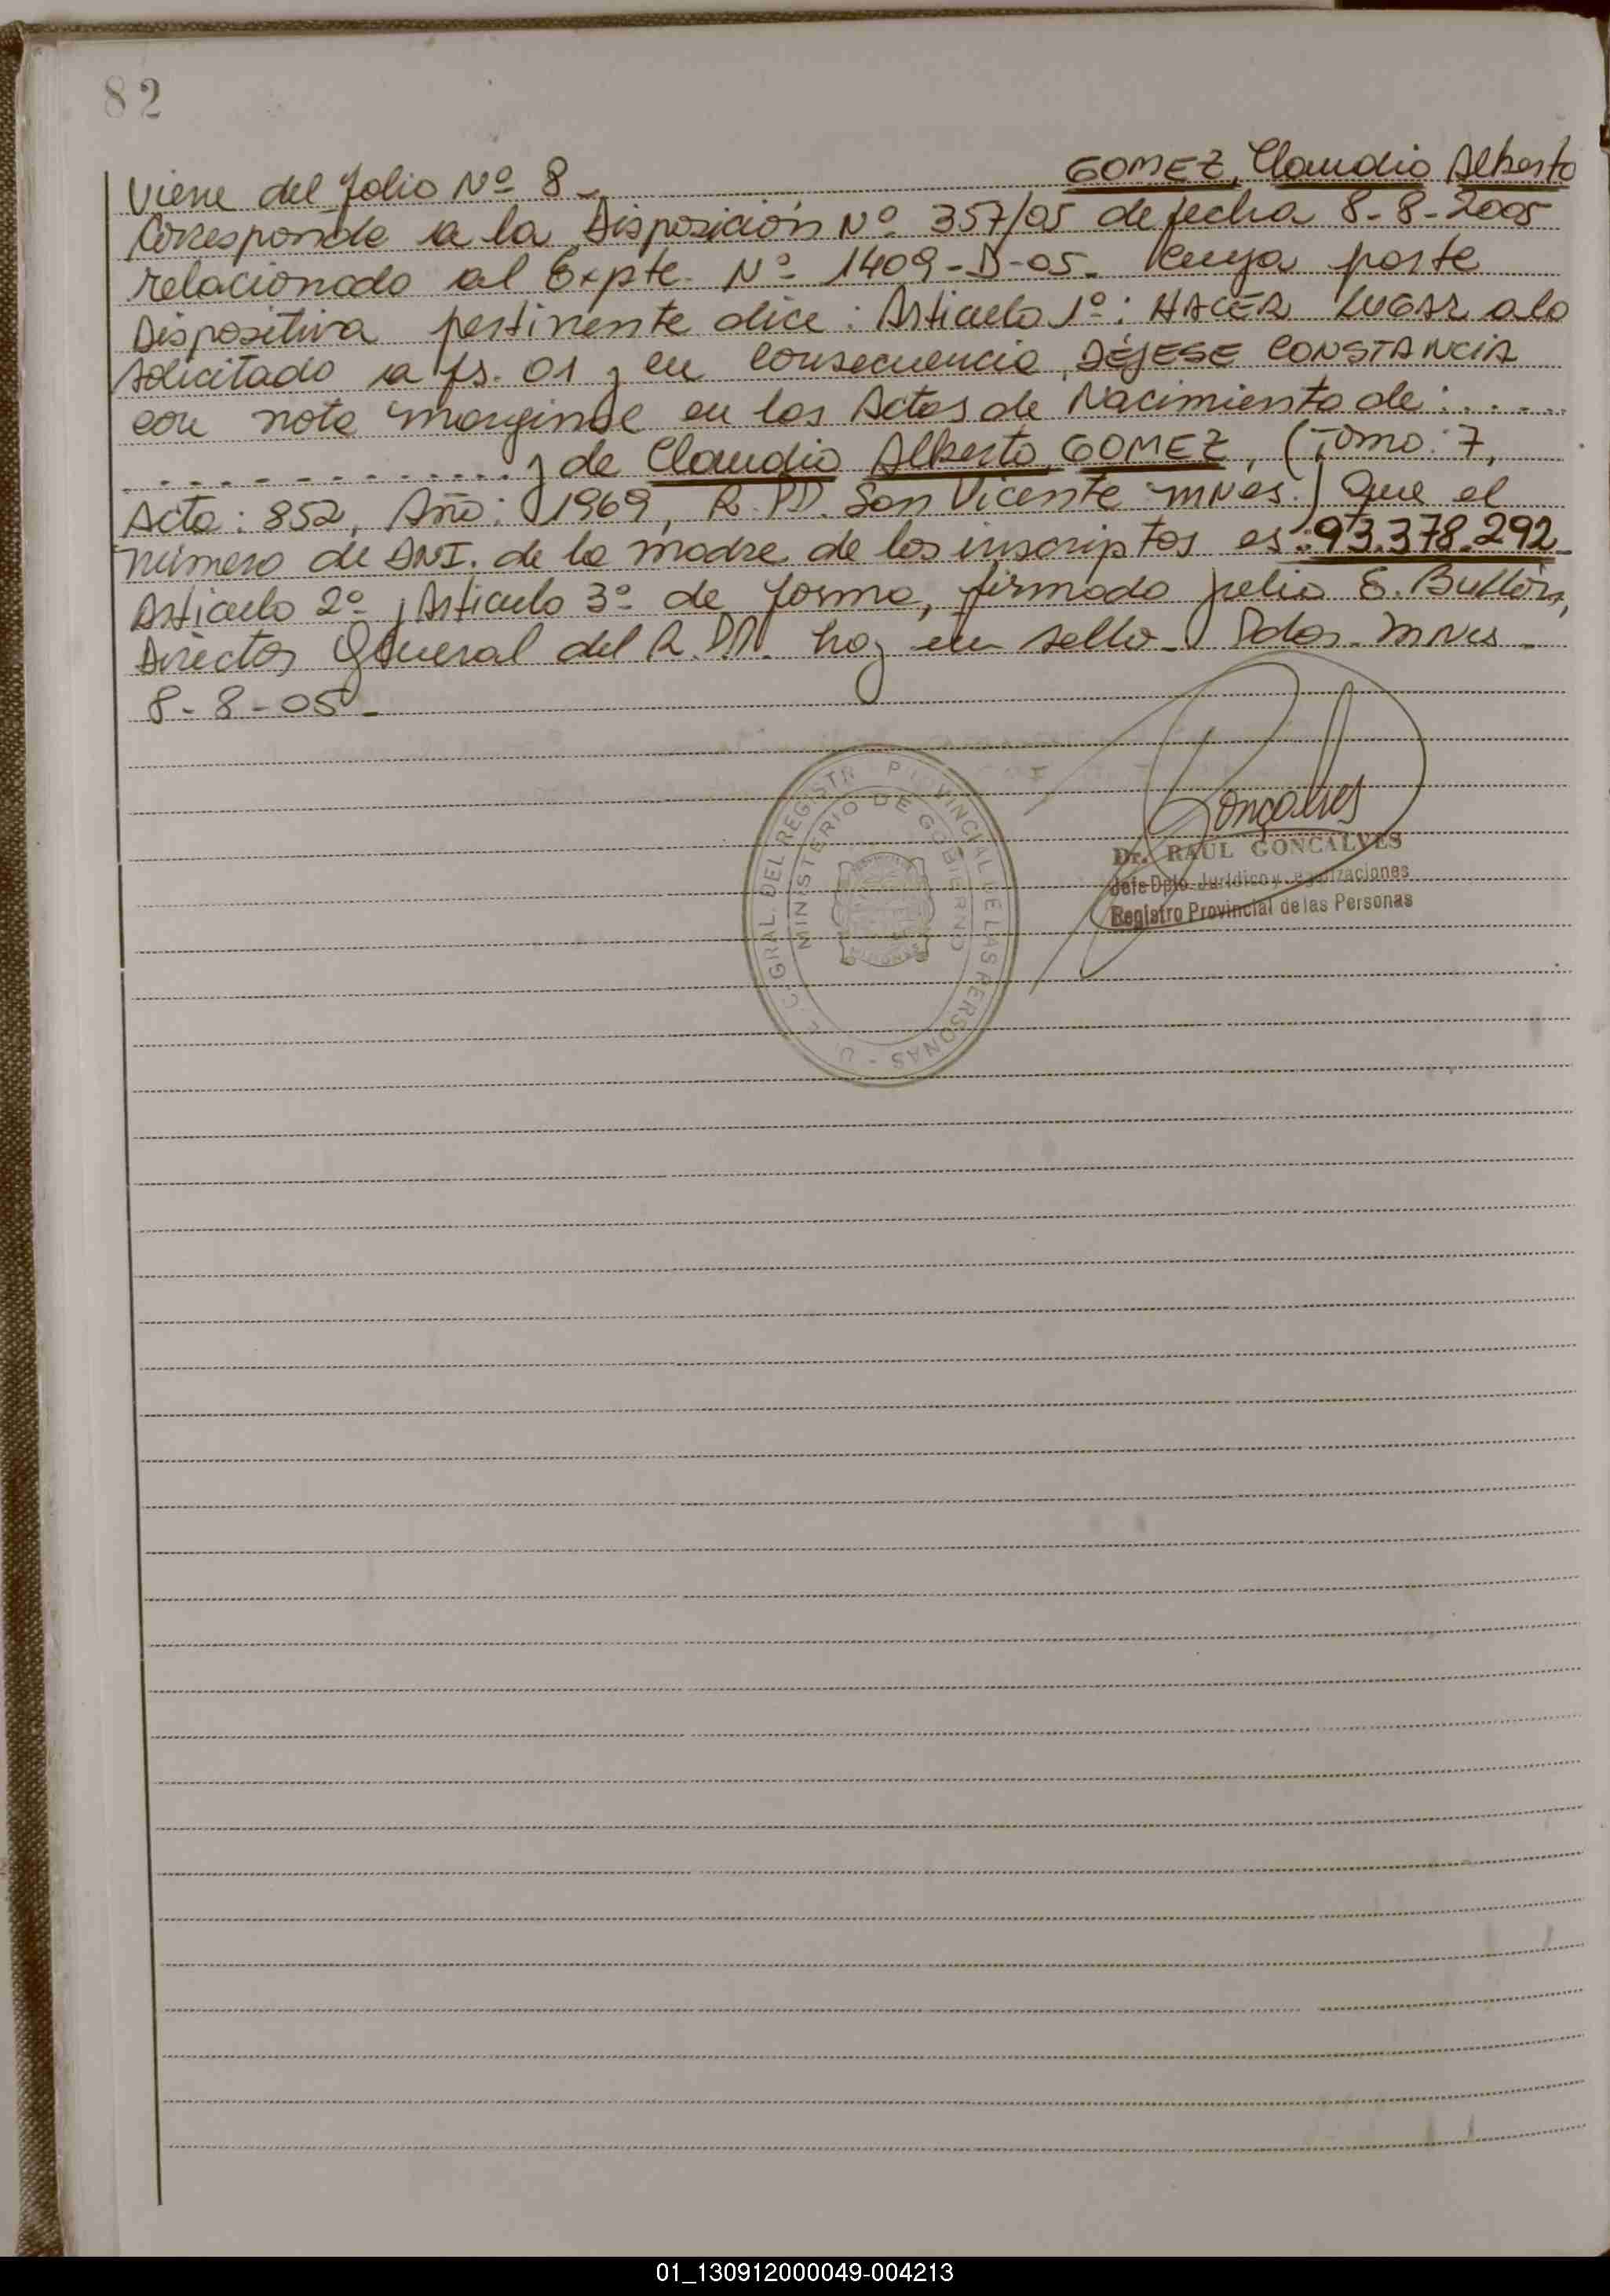 82
Viene del folio Nº 8 - GOMEZ, Claudio Alberto
Corresponde a la Disposición Nº 357/05 de fecha 8-8-2005
relacionado al Expte. Nº 1409-D-05. Cuya parte
Dispositiva pertinente dice: Articulo 1º: HACER LUGAR a lo
solicitado a fs. 01 y en consecuencia, DÉJESE CONSTANCIA
con nota marginal en las Actas de Nacimiento de: . . . . .
. . . . . . . . . . . . . . y de Claudio Alberto GOMEZ, (Tomo: 7,
Acta: 852, Año: 1969, R.PP. San Vicente mnes.) Que el
número de DNI. de la madre de los inscriptos es: 93.378.292-
Articulo 2º y Articulo 3º de forma, firmado Julio E.
Director General del R.PP. hay un sello - Pdas. Mnes -
8-8-05 -
C. GRAL. DEL REGISTR PROVINCIAL DE LAS PERSONAS
MINISTERIO DE GOBIERNO
MISIONES
Gonçalves
Dr. RAUL GONCALVES
Jefe Dpto. Jurídico y
Registro Provincial de las Personas
01_130912000049-004213